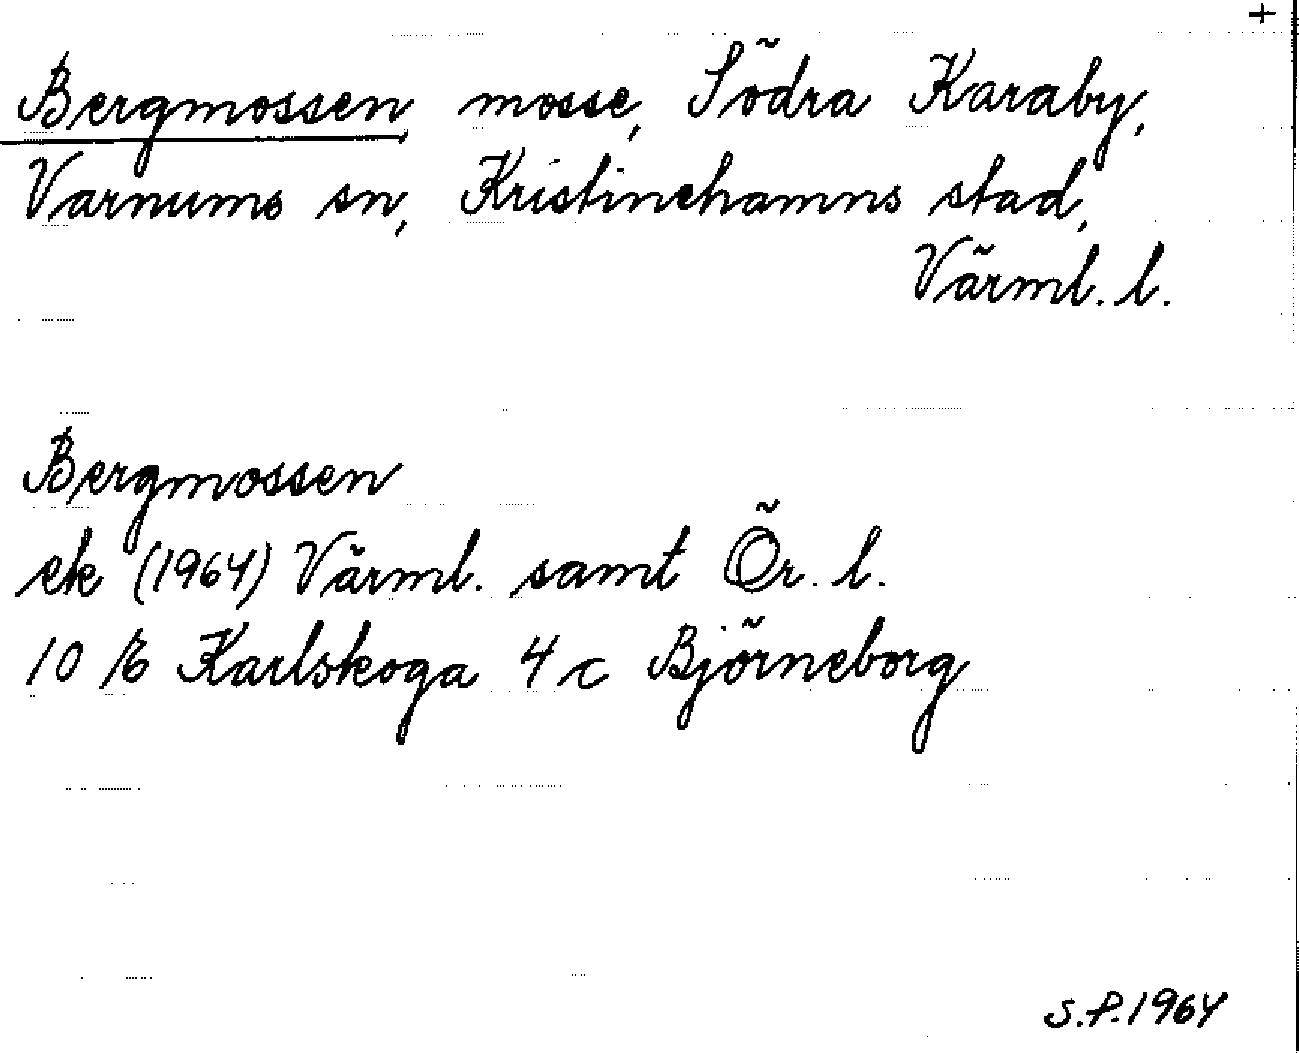 +
Bergmossen, mosse, Södra Karaby,
Varnums sn, Kristinehamns stad,
Värml. l.
Bergmossen
ek (1964) Värml. samt Ör. l.
10 E Karlskoga 4 c Björneborg
S.P. 1964